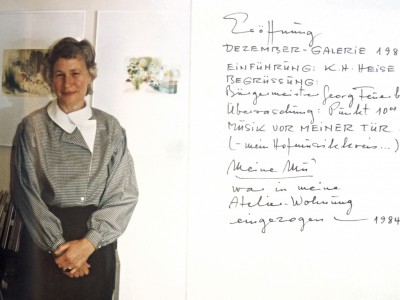 Eröffnung
DEZEMBER-GALERIE 198
EINFÜHRUNG: K.H. HEISE
BEGRÜSSUNG:
Bürgermeister Georg
Überraschung: Pünkt 10⁰⁰
MUSIK VOR MEINER TÜR
(-mein Hofmusikkreis...)
Meine
was in meine
Atelier-Wohnung
eingezogen — 1984